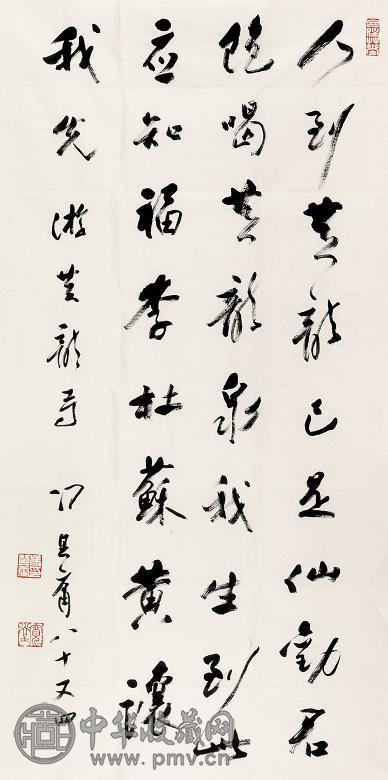 人到黄龍已是仙劝君
饱喝黄龍泉我生到此
应知福李杜蘇黄讓
我先 游黄龍寺 冯其庸八十又四
中华收藏网
www.pmv.cn